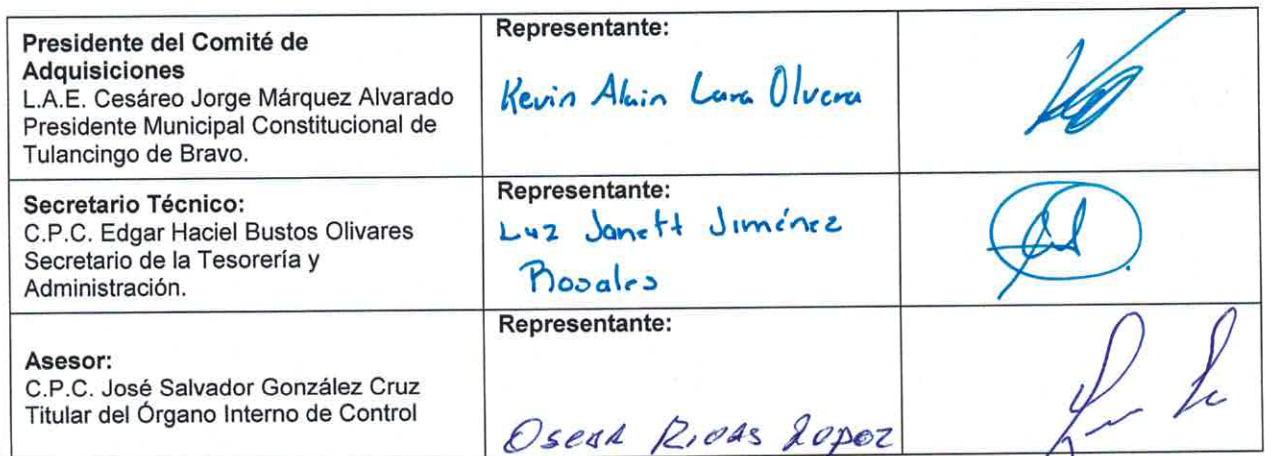 Presidente del Comité de
Adquisiciones
L.A.E. Cesáreo Jorge Márquez Alvarado
Presidente Municipal Constitucional de
Tulancingo de Bravo.
Representante:
Kevin Alain Lara Olvera
Secretario Técnico:
C.P.C. Edgar Haciel Bustos Olivares
Secretario de la Tesorería y
Administración.
Representante:
Luz Janett Jiménez
Rosales
Asesor:
C.P.C. José Salvador González Cruz
Titular del Órgano Interno de Control
Representante:
Oscar Rivas Lopez